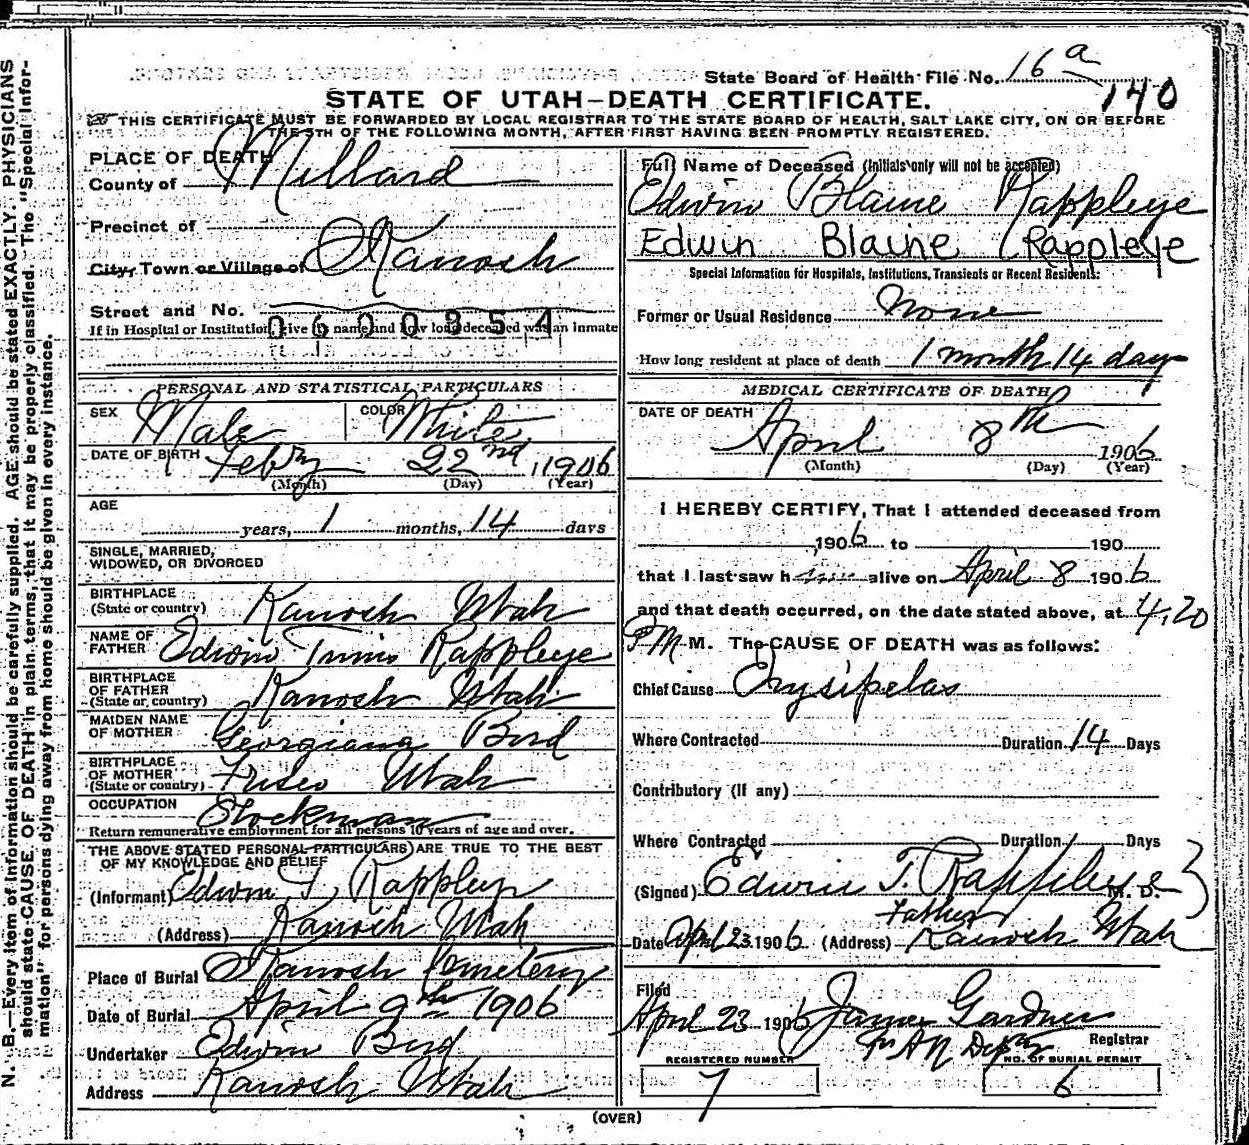 State Board of Health File No. 16 a
140
STATE OF UTAH—DEATH CERTIFICATE.
THIS CERTIFICATE MUST BE FORWARDED BY LOCAL REGISTRAR TO THE STATE BOARD OF HEALTH, SALT LAKE CITY, ON OR BEFORE
THE 5TH OF THE FOLLOWING MONTH, AFTER FIRST HAVING BEEN PROMPTLY REGISTERED.
N. B.—Every item of information should be carefully supplied. AGE should be stated EXACTLY. PHYSICIANS
should state CAUSE OF DEATH in plain terms, that it may be properly classified. The "Special Infor-
mation" for persons dying away from home should be given in every instance.
PLACE OF DEATH
County of Millard
Precinct of
City, Town or Village of Kanosh
Street and No.
0620354
If in Hospital or Institution, give its name and how long deceased was an inmate
PERSONAL AND STATISTICAL PARTICULARS
SEX Male COLOR White
DATE OF BIRTH Febry 22nd, 1906
(Month) (Day) (Year)
AGE
years, 1 months, 14 days
SINGLE, MARRIED,
WIDOWED, OR DIVORCED
BIRTHPLACE
(State or country) Kanosh Utah
NAME OF
FATHER Edwin Rappleye
BIRTHPLACE
OF FATHER
(State or country) Kanosh Utah
MAIDEN NAME
OF MOTHER Georgiana Bird
BIRTHPLACE
OF MOTHER
(State or country) Frisco Utah
OCCUPATION Stockman
Return remunerative employment for all persons 10 years of age and over.
THE ABOVE STATED PERSONAL PARTICULARS ARE TRUE TO THE BEST
OF MY KNOWLEDGE AND BELIEF
(Informant) Edwin T. Rappleye
(Address) Kanosh Utah
Place of Burial Kanosh Cemetery
Date of Burial April 9th 1906
Undertaker Edwin Bird
Address Kanosh Utah
Full Name of Deceased (Initials only will not be accepted)
Edwin Blaine Rappleye
Edwin Blaine (Rappleye
Special Information for Hospitals, Institutions, Transients or Recent Residents:
Former or Usual Residence None
How long resident at place of death 1 month 14 days
MEDICAL CERTIFICATE OF DEATH
DATE OF DEATH
April 8th 1906
(Month) (Day) (Year)
I HEREBY CERTIFY, That I attended deceased from
1906 to 190
that I last saw h alive on April 8 1906
and that death occurred, on the date stated above, at 4.20
PM M. The CAUSE OF DEATH was as follows:
Chief Cause Erysipelas
Where Contracted Duration 14 Days
Contributory (If any)
Where Contracted Duration Days
(Signed) Edwin T. Rappleye M. D.
Father
Date April 23 1906 (Address) Kanosh Utah
Filed
April 23 1906 James Gardner
Registrar
REGISTERED NUMBER
7
NO. OF BURIAL PERMIT
6
(OVER)